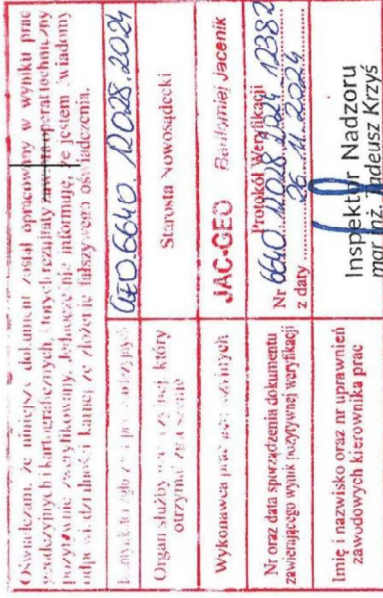 Oświadczam, że niniejszy dokument został opracowany w wyniku prac
geodezyjnych i kartograficznych, których rezultaty zawiera operat techniczny
pozytywnie zweryfikowany. Jednocześnie informuję, że jestem świadomy
odpowiedzialności karnej za złożenie fałszywego oświadczenia.
GEO.6640.12028.2024
Organ służby który
otrzymał zgłoszenie
Starosta Nowosądecki
Wykonawca prac
JAC-GEO Bartłomiej Jacenik
Nr oraz data sporządzenia dokumentu
zawierającego wynik pozytywnej weryfikacji
Protokół Weryfikacji
Nr 6640.12028.2024.12382
z daty 26.11.2024
Imię i nazwisko oraz nr uprawnień
zawodowych kierownika prac
Inspektor Nadzoru
mgr inż. Tadeusz Krzyś